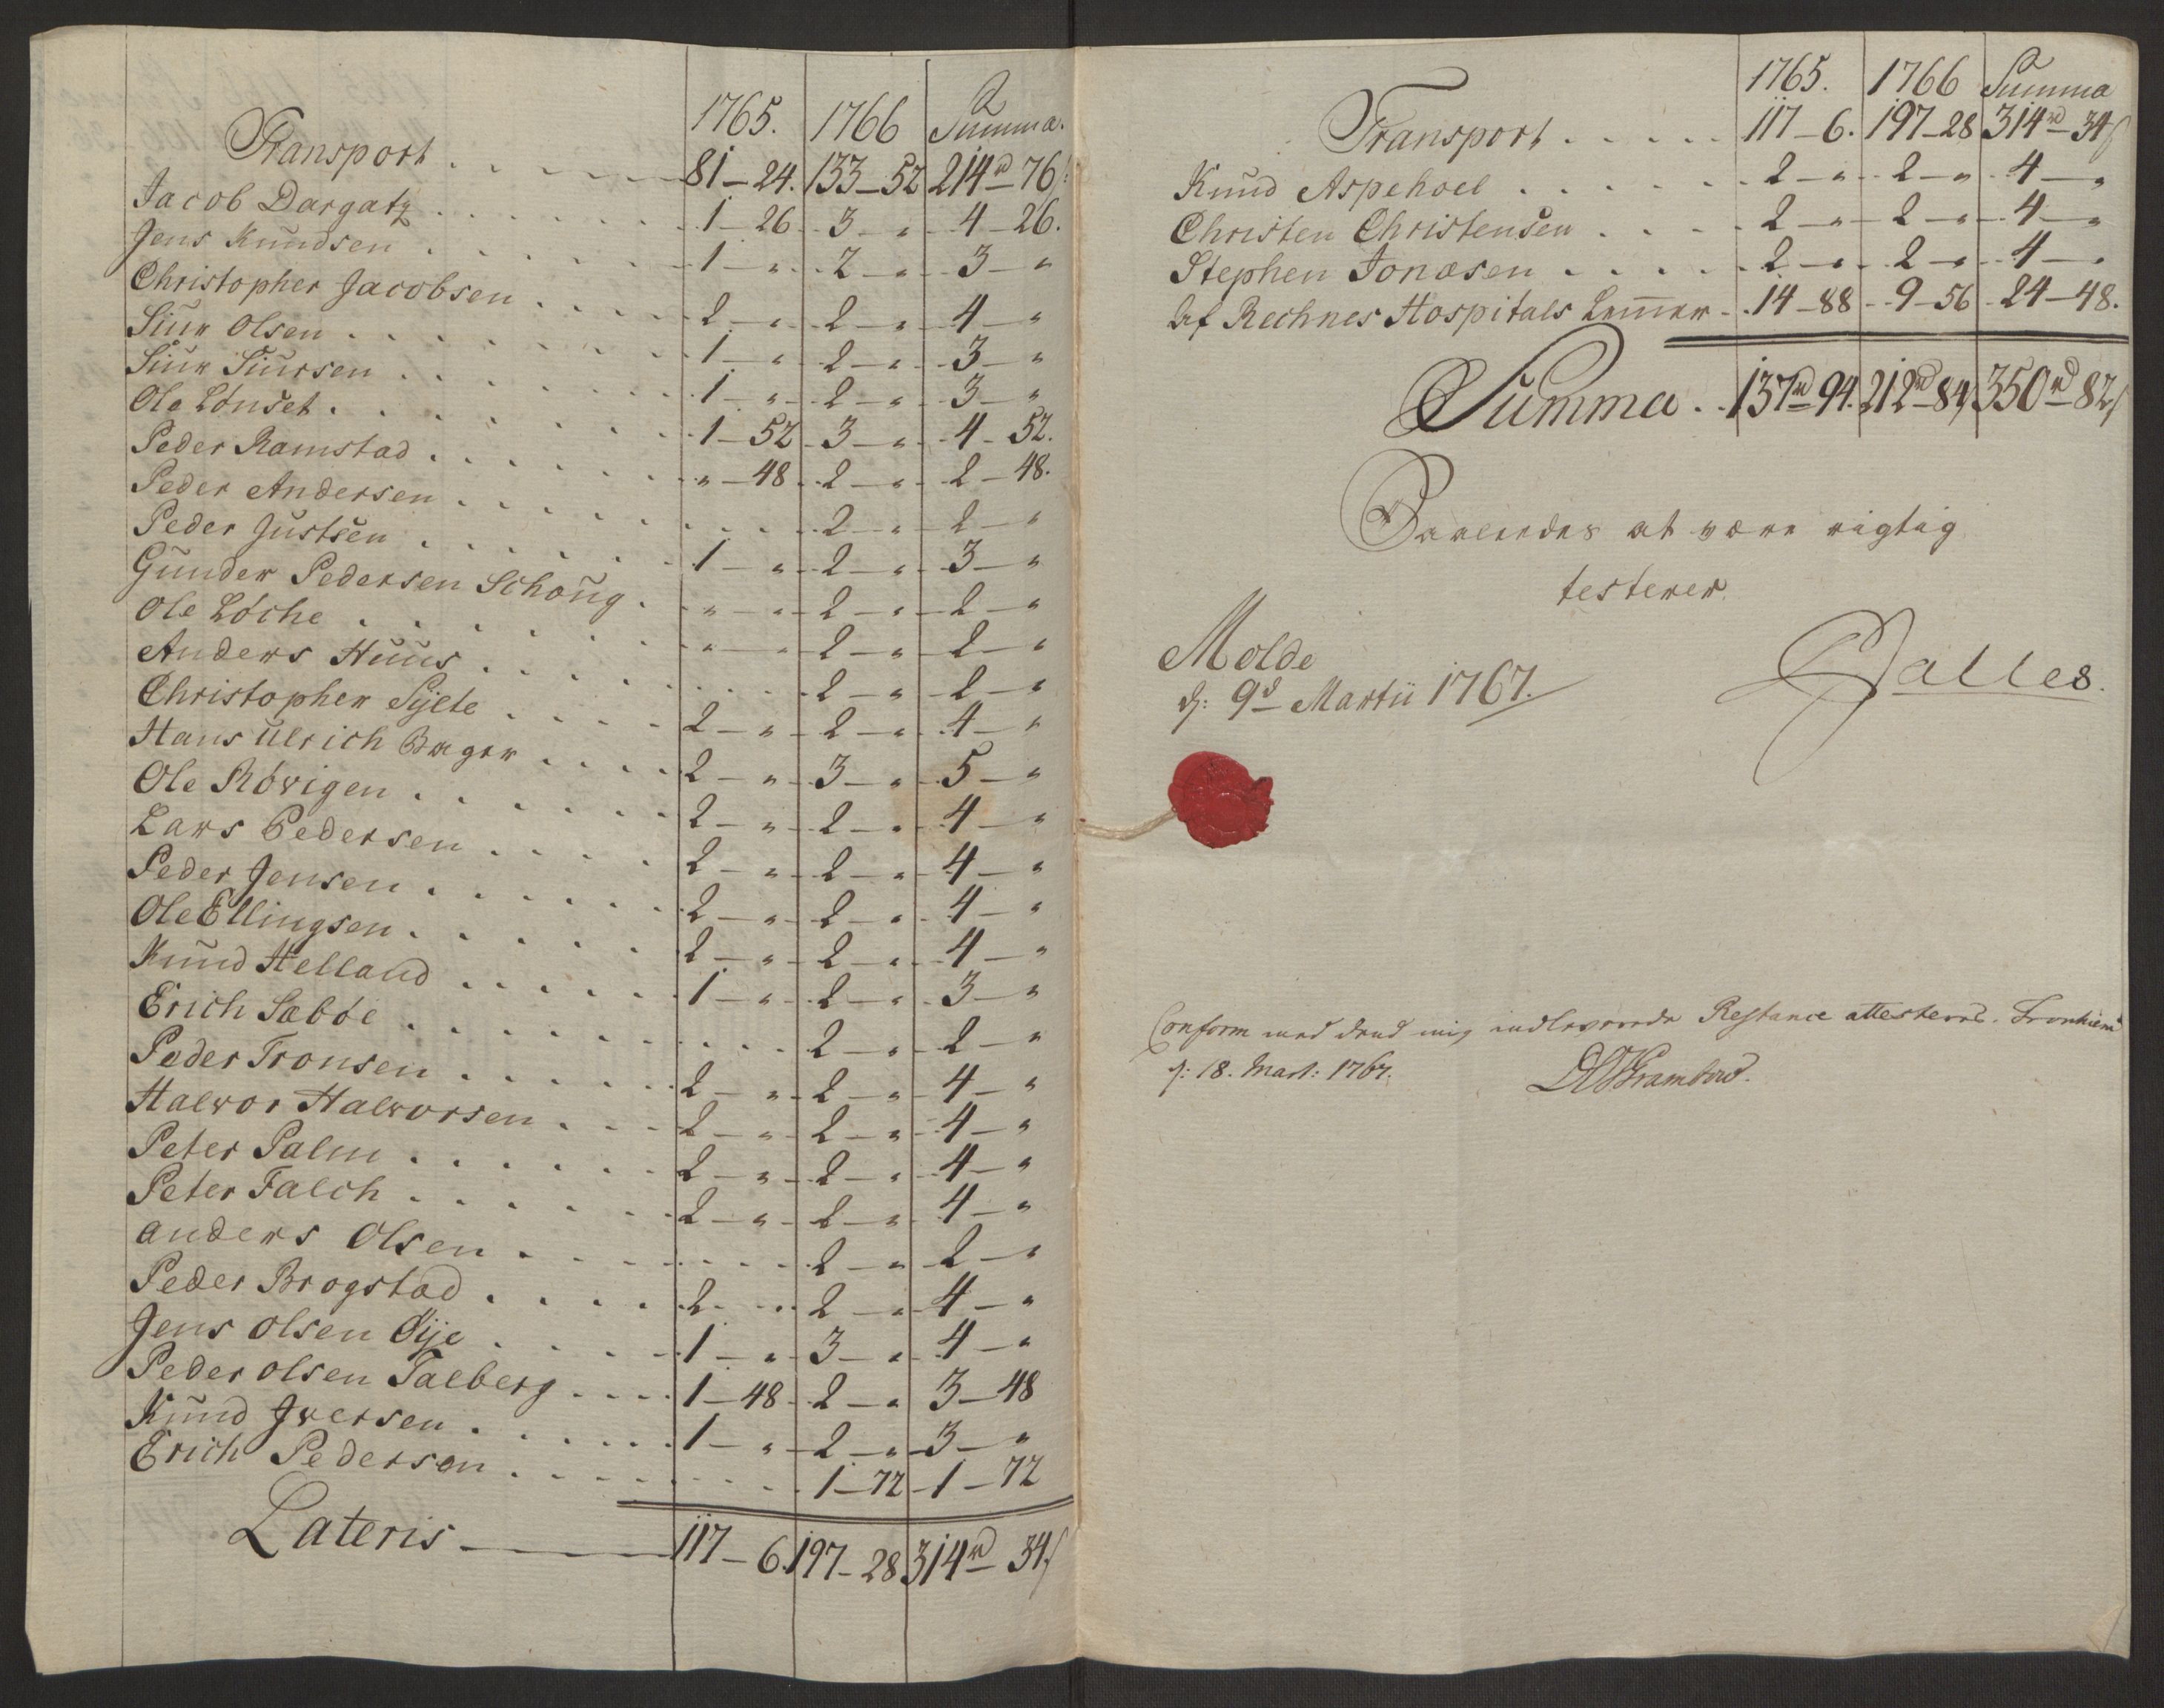 1765. 1766 Summa.
Transport . . . . . 81 - 24. 133 - 52 214rd - 76ß
Jacob Dargatz . . . . . . 1 - 26 3 - " 4 - 26.
Jens Knudsen . . . . . . 1 - " 2 - " 3 - "
Christopher Jacobsen . . . . 2 - " 2 - " 4 - "
Siur Olsen . . . . . . . 1 - " 2 - " 3 - "
Siur Siursen . . . . . . 1 - " 2 - " 3 - "
Ole Lönset . . . . . . . 1 - 52 3 - " 4 - 52.
Peder Ramstad . . . . . . " - 48 2 - " 2 - 48.
Peder Andersen . . . . . . 2 - " 2 - "
Peder Justsen . . . . . . 1 - " 2 - " 3 - "
Gunder Pedersen Schoug . " - " 2 - " 2 - "
Ole Löche . . . . . . . " - " 2 - " 2 - "
Anders Huus . . . . . . 2 - " 2 - "
Christopher Sylte . . . . 2 - " 2 - " 4 - "
Hans Ulrich Bager . . . . 2 - " 3 - " 5 - "
Ole Rövigen . . . . . . 2 - " 2 - " 4 - "
Lars Pedersen . . . . 2 - " 2 - " 4 - "
Peder Jensen . . . . . . 2 - " 2 - " 4 - "
Ole Ellingsen . . . . . 2 - " 2 - " 4 - "
Knud Helland . . . . . . 1 - " 2 - " 3 - "
Erich Sæböe . . . . . . 2 - " 2 - "
Peder Tronsen . . . . . . 2 - " 2 - " 4 - "
Halvor Halvorsen . . . 2 - " 2 - " 4 - "
Peter Palm . . . . . . 2 - " 2 - " 4 - "
Peter Falch . . . . . . 2 - " 2 - " 4 - "
Anders Olsen . . . . 2 - " 2 - "
Peder Brogstad . . . . 2 . . . 2 - " 4 - "
Jens Olsen Öÿe . . . . 1 - " 3 - " 4 - "
Peder Olsen Talberg . . . . 1 - 48 2 - " 3 - 48
Knud Iversen . . . . . . 1 - " 2 - " 3 - "
Erich Pedersen . . . . 1 - 72 1 - 72
Lateris 117 - 6. 197 - 28 314rd 34ß
1765. 1766 Summa
Transport . . . . . 117 - 6. 197 - 28 314rd - 34ß
Knud Aspehoel . . . . . . 2 - " 2 - " 4 - "
Christen Christensen . . . . 2 - " 2 - " 4 - "
Stephen Jonæsen . . . . . 2 - " 2 - " 4 - "
Af Rechnes Hospitals Lemmer - 14 - 88 9 - 56 24 - 48.
Summa . . 137rd 94. 212rd 84 350rd 82ß
Saaledes at være rigtig
testerer
Molde
d: 9d Martii 1767.
Galles.
Conform med dend mig indleverede Restance attesteres. Tronhiem
d: 18. Mart: 1767.